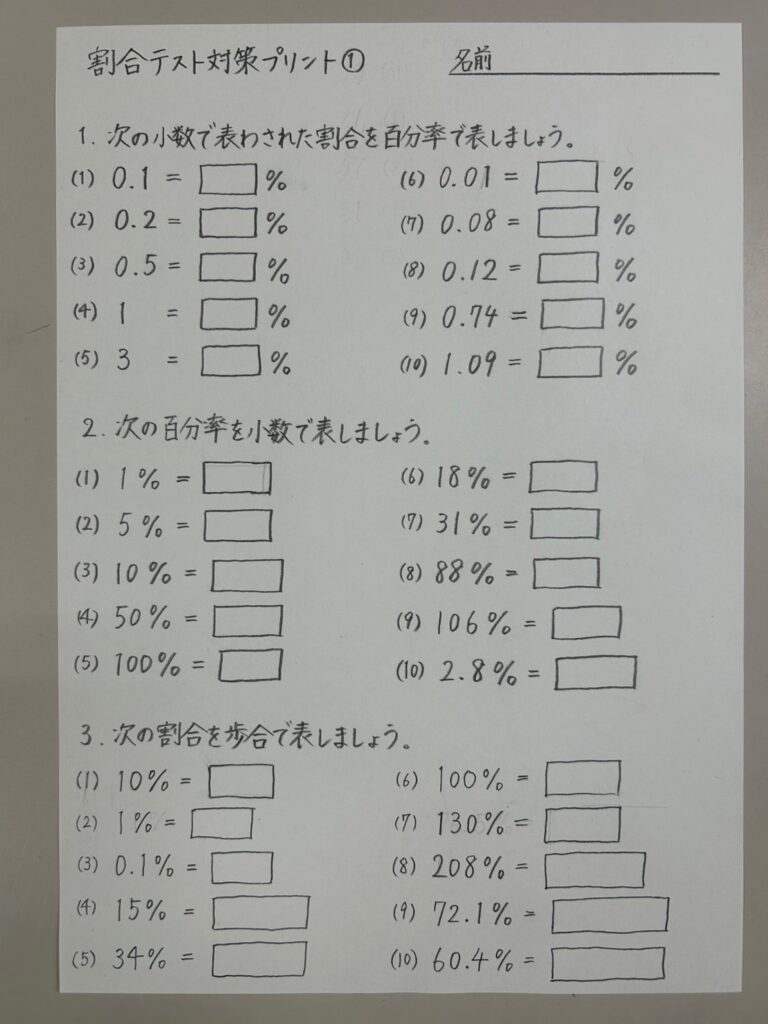 割合テスト対策プリント① 名前
1. 次の小数で表わされた割合を百分率で表しましょう。
(1) 0.1 = %
(2) 0.2 = %
(3) 0.5 = %
(4) 1 = %
(5) 3 = %
(6) 0.01 = %
(7) 0.08 = %
(8) 0.12 = %
(9) 0.74 = %
(10) 1.09 = %
2. 次の百分率を小数で表しましょう。
(1) 1% =
(2) 5% =
(3) 10% =
(4) 50% =
(5) 100% =
(6) 18% =
(7) 31% =
(8) 88% =
(9) 106% =
(10) 2.8% =
3. 次の割合を歩合で表しましょう。
(1) 10% =
(2) 1% =
(3) 0.1% =
(4) 15% =
(5) 34% =
(6) 100% =
(7) 130% =
(8) 208% =
(9) 72.1% =
(10) 60.4% =